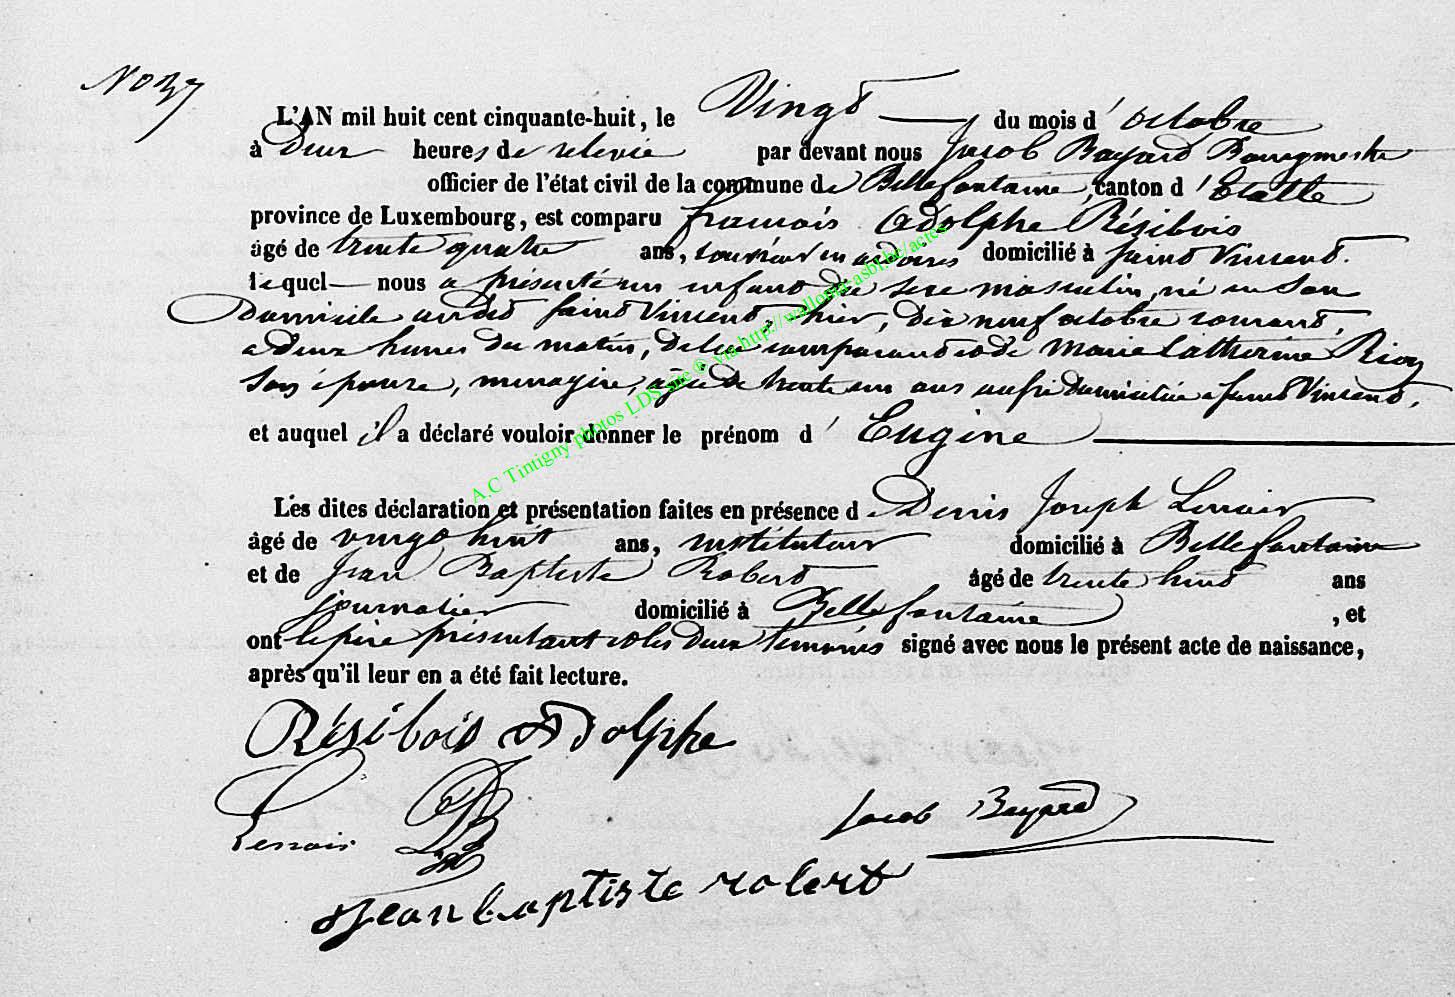 No 37
L'AN mil huit cent cinquante-huit, le Vingt du mois d'octobre
à Deux heures de relevée par devant nous Jacob Bayard Bourgmestre
officier de l'état civil de la commune de Bellefontaine, canton d'Etalle
province de Luxembourg, est comparu francois Adolphe Résibois
âgé de trente quatre ans, ouvrier en ardoises domicilié à saint Vincent.
lequel nous a présenté un enfant du sexe masculin, né en son
Domicile au dit saint Vincent, hier, dix neuf octobre courant,
a deux heures du matin, de lui comparant et de Marie Catherine
son épouse, menagère, agée de trente un ans aussi domiciliée a saint Vincent,
et auquel il a déclaré vouloir donner le prénom d'Eugène
Les dites déclaration et présentation faites en présence de Denis Joseph
âgé de vingt huit ans, instituteur domicilié à Bellefontaine
et de Jean Baptiste Robert âgé de trente huit ans
journalier domicilié à Bellefontaine, et
ont le père présentant et les deux temoins signé avec nous le présent acte de naissance,
après qu'il leur en a été fait lecture.
Résibois Adolphe
Jacob Bayard
Jean baptiste robert
A.C Tintigny photos LDS site ® via http://wallonia.asbl.be/actes